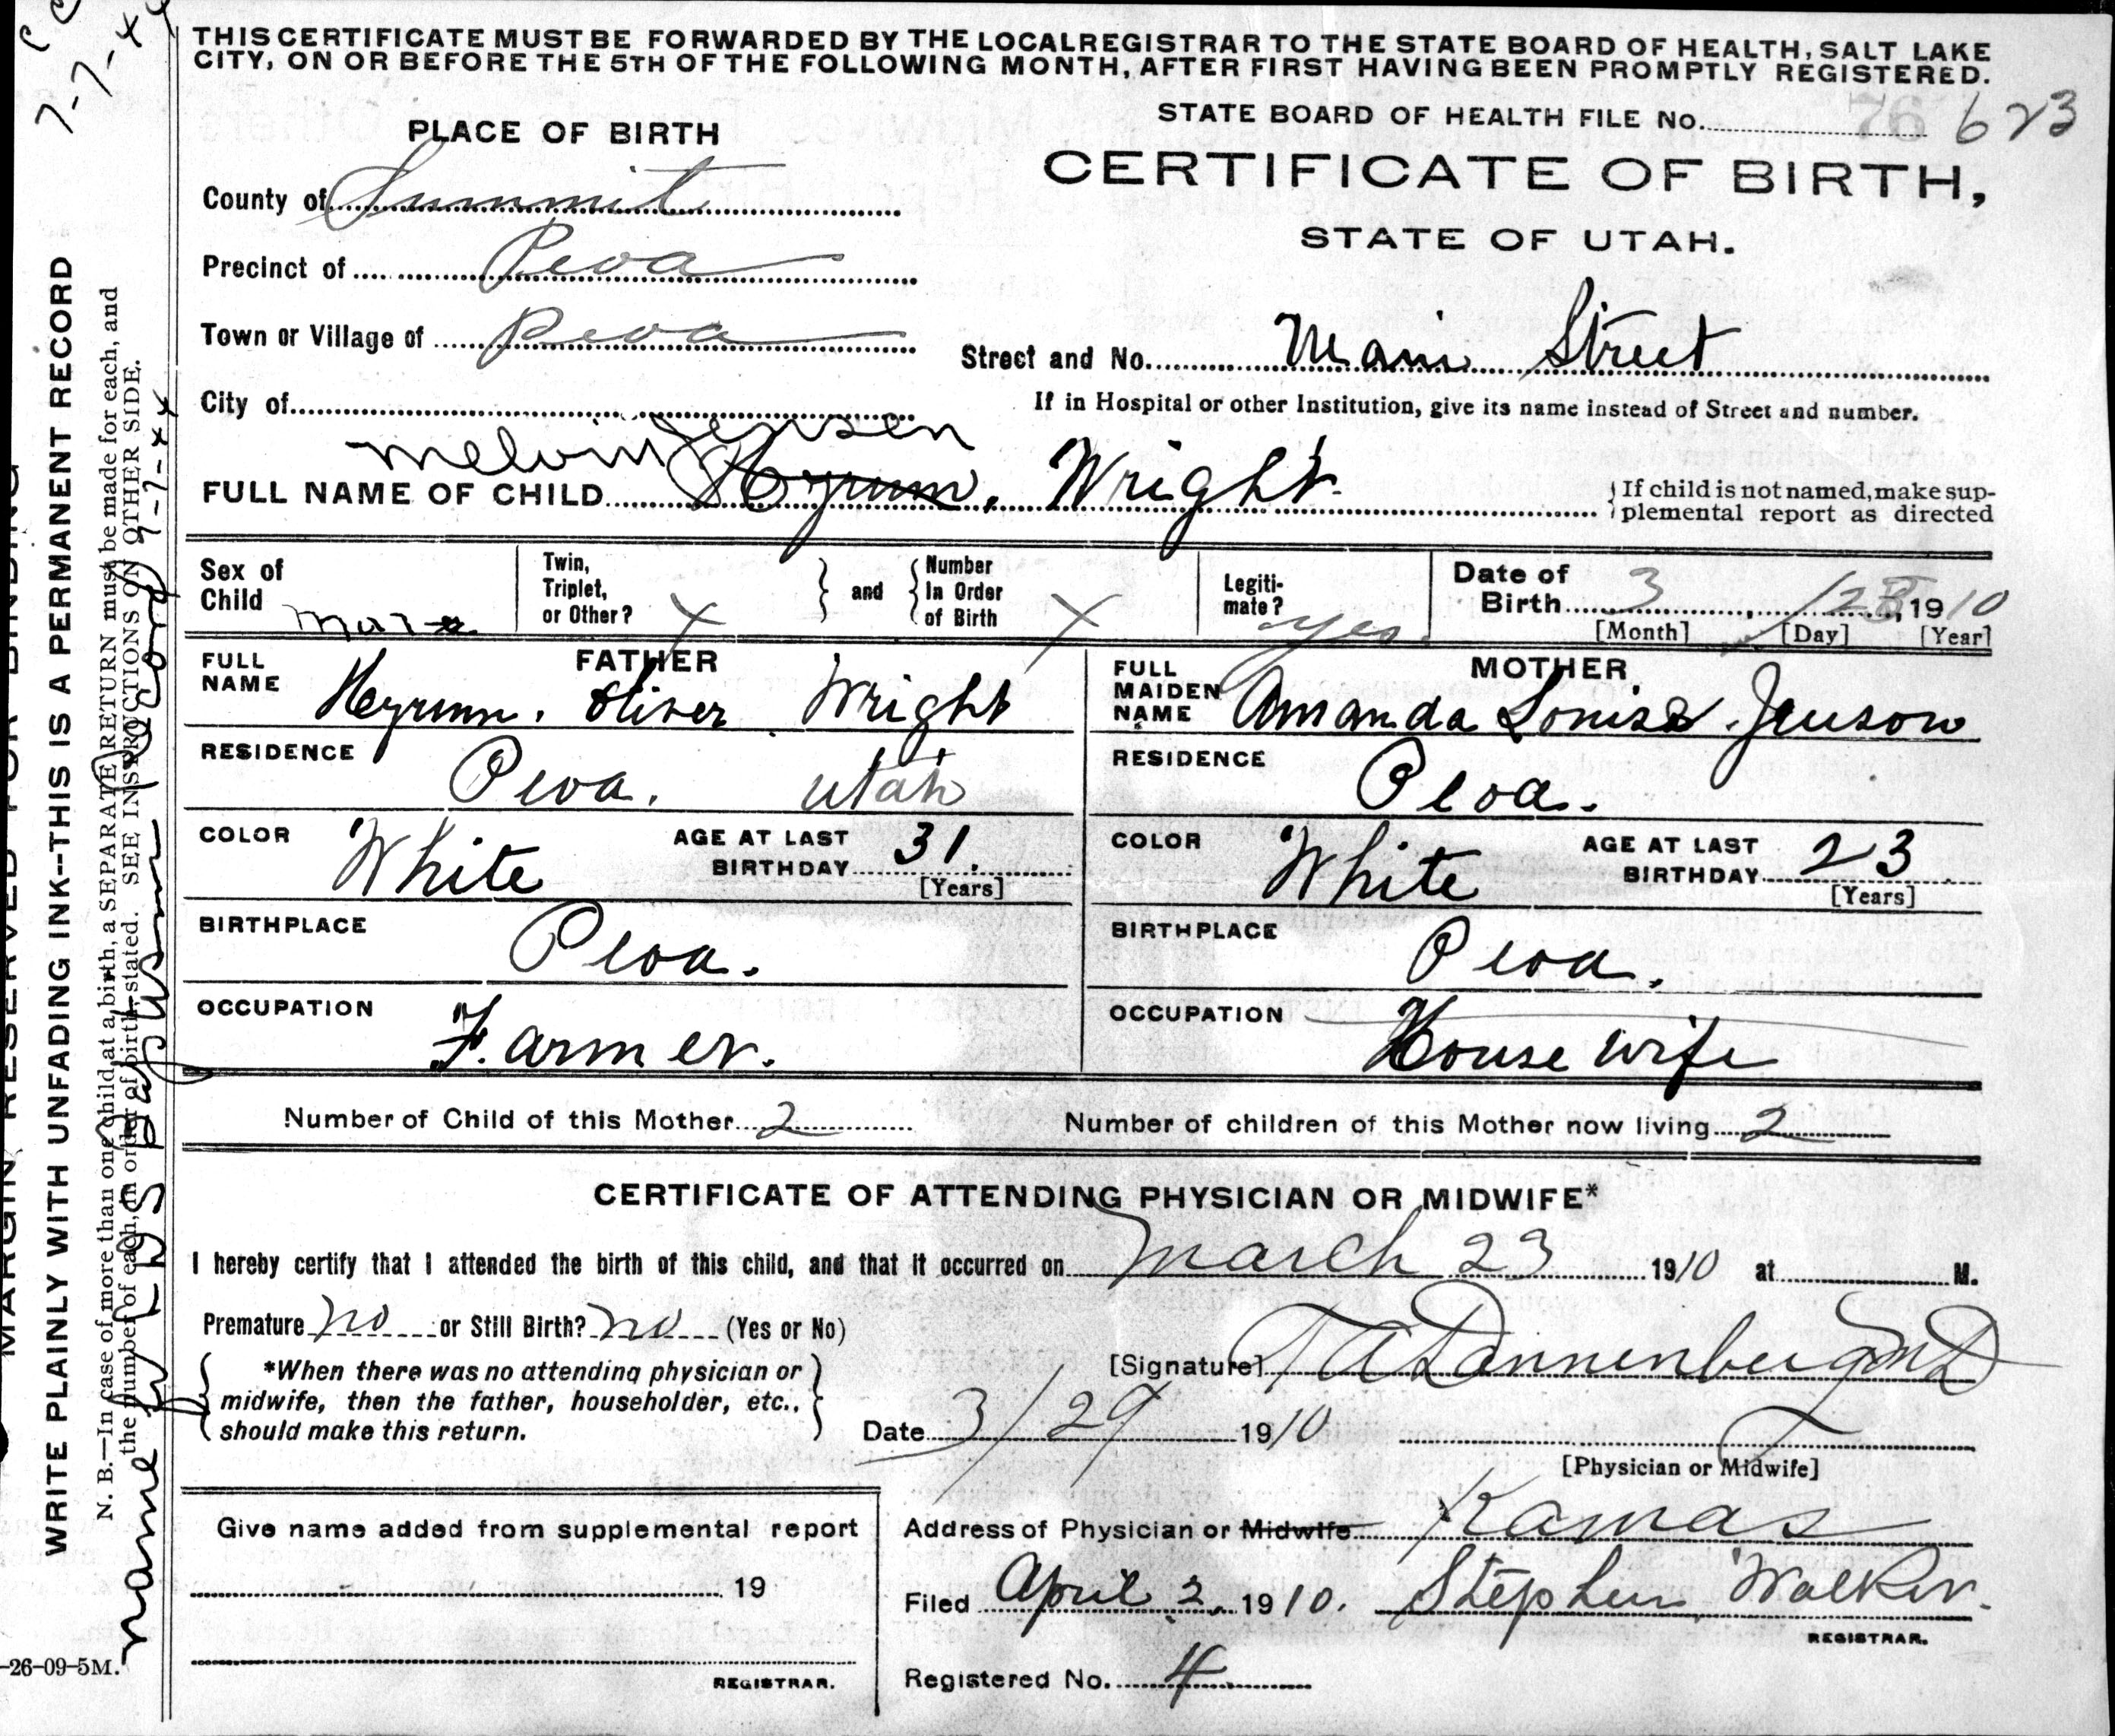 THIS CERTIFICATE MUST BE FORWARDED BY THE LOCAL REGISTRAR TO THE STATE BOARD OF HEALTH, SALT LAKE
CITY, ON OR BEFORE THE 5TH OF THE FOLLOWING MONTH, AFTER FIRST HAVING BEEN PROMPTLY REGISTERED.
STATE BOARD OF HEALTH FILE No. 76 623
PLACE OF BIRTH
CERTIFICATE OF BIRTH,
STATE OF UTAH.
County of Summit
Precinct of Peoa
Town or Village of Peoa
Street and No. Main Street
City of
If in Hospital or other Institution, give its name instead of Street and number.
Melvin Jensen
FULL NAME OF CHILD Hyrum. Wright
If child is not named, make sup-
plemental report as directed
Sex of Child Male
Twin, Triplet, or Other? X
and
Number In Order of Birth X
Legiti-mate? yes.
Date of Birth 3, 23, 1910
[Month] [Day] [Year]
FATHER
FULL NAME Hyrum. Oliver Wright
RESIDENCE Peoa. Utah
COLOR White AGE AT LAST BIRTHDAY 31. [Years]
BIRTHPLACE Peoa.
OCCUPATION Farmer.
MOTHER
FULL MAIDEN NAME Amanda Louisa Jenson
RESIDENCE Peoa.
COLOR White AGE AT LAST BIRTHDAY 23 [Years]
BIRTHPLACE Peoa.
OCCUPATION House wife
Number of Child of this Mother 2 Number of children of this Mother now living 2
CERTIFICATE OF ATTENDING PHYSICIAN OR MIDWIFE*
I hereby certify that I attended the birth of this child, and that it occurred on March 23 1910 at M.
Premature no or Still Birth? no (Yes or No)
*When there was no attending physician or
midwife, then the father, householder, etc.,
should make this return.
[Signature] T A Dannenberg MD
Date 3/29 1910
[Physician or Midwife]
Give name added from supplemental report
19
REGISTRAR.
Address of Physician or Midwife Kamas
Filed April 2. 1910. Stephen Walker.
REGISTRAR.
Registered No. 4
MARGIN RESERVED FOR BINDING
WRITE PLAINLY WITH UNFADING INK--THIS IS A PERMANENT RECORD
N. B.—In case of more than one child at a birth, a SEPARATE RETURN must be made for each, and
the number of each, in order of birth stated. SEE INSTRUCTIONS ON OTHER SIDE.
name by LDS Baptism Record 7-7-44
7-7-44
-26-09-5M.